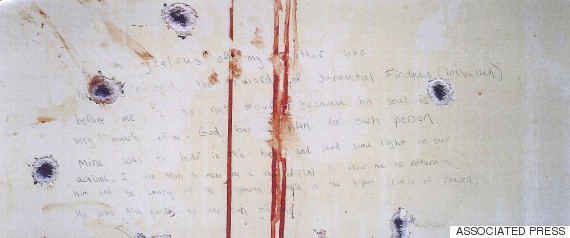 jealous of my brother who
ha the reward of jannutul Firdaus (inshallah)
before me I do not mourn because his soul is
very much alive. God has a plan for each person.
Mine was to hide in this and shed some light on our
actions. I ask Allah to make me a to allow me to return to
him and be among all the people in the highest levels of heaven.
He who Allah guides no one can
ASSOCIATED PRESS